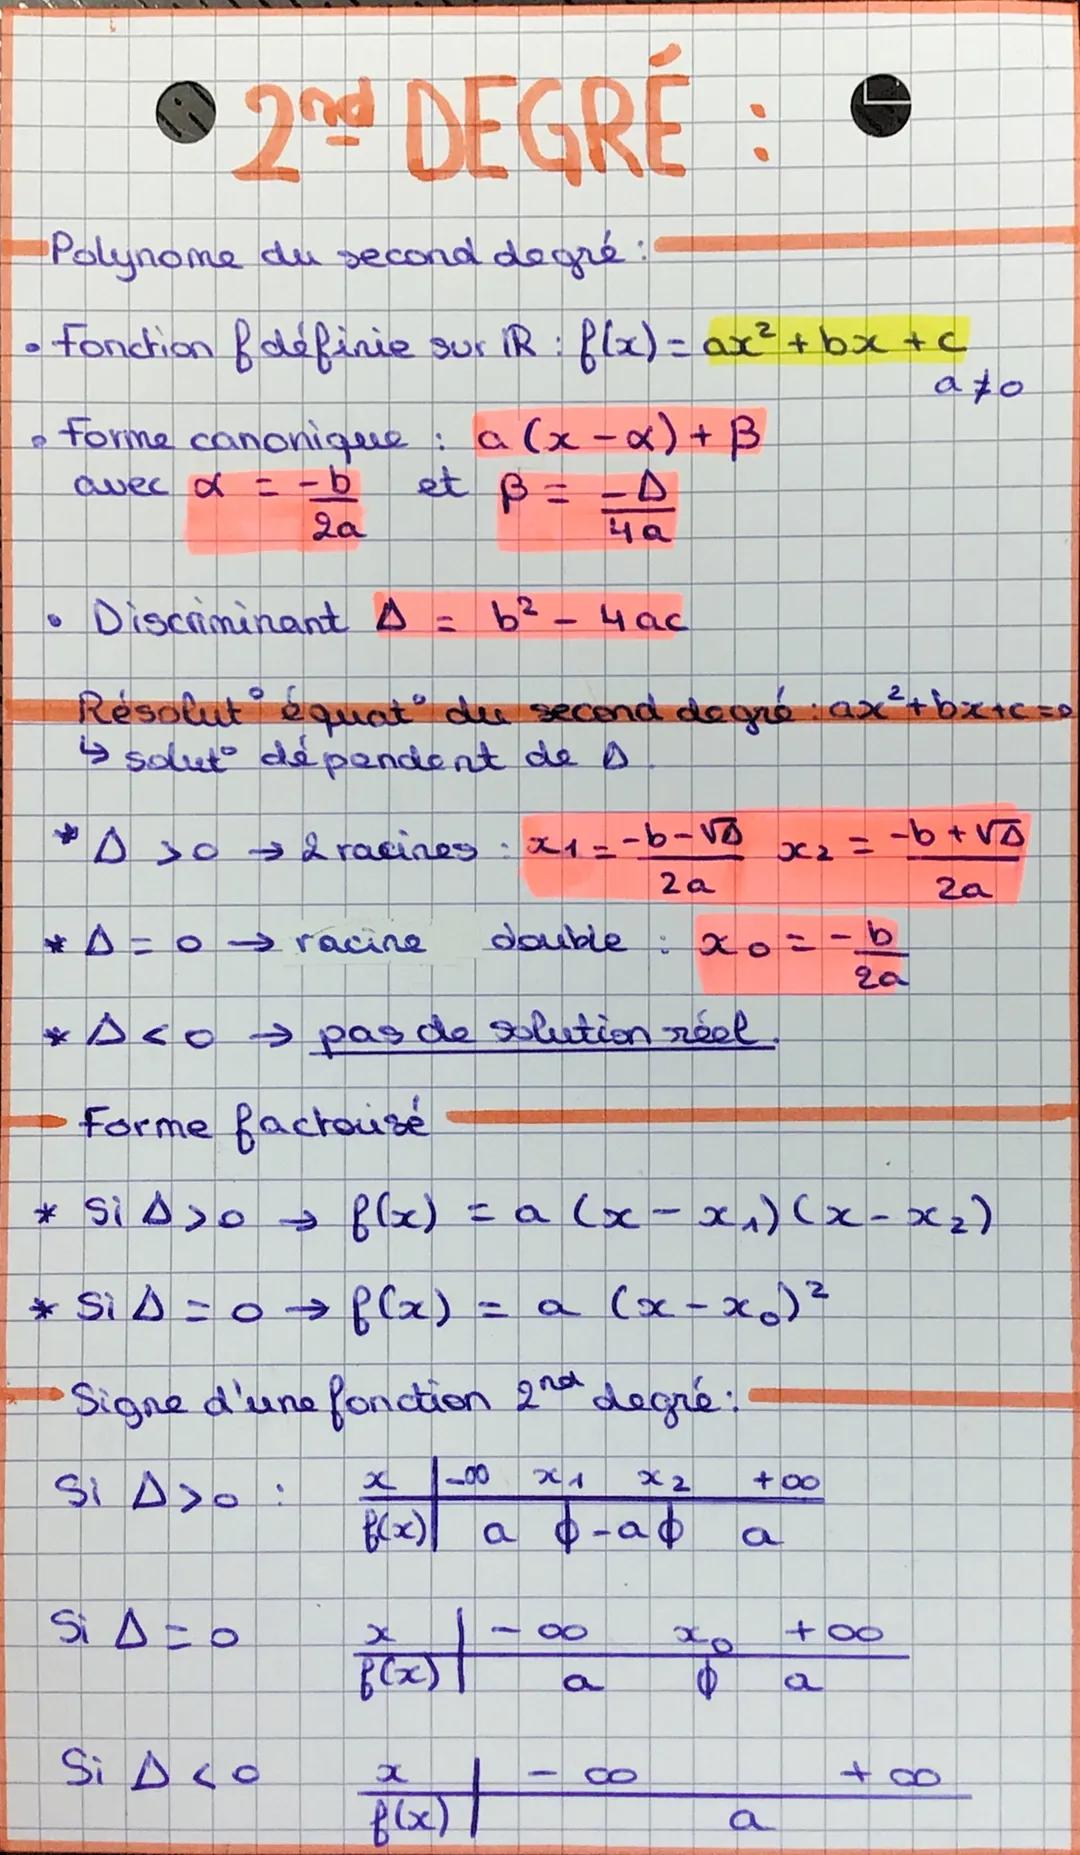 2nd DEGRÉ :
Polynome du second degré :
• Fonction f définie sur ℝ : f(x) = ax² + bx + c
a ≠ 0
• Forme canonique : a (x - α) + β
avec α = -b/2a et β = -Δ/4a
• Discriminant Δ = b² - 4ac
Résolut° équat° du second degré : ax² + bx + c = 0
↳ solut° dépendent de Δ.
* Δ > 0 → 2 racines : x₁ = -b-√Δ/2a x₂ = -b+√Δ/2a
* Δ = 0 → racine double : x₀ = -b/2a
* Δ < 0 → pas de solution réel.
Forme factorisé
* Si Δ > 0 → f(x) = a (x - x₁)(x - x₂)
* Si Δ = 0 → f(x) = a (x - x₀)²
Signe d'une fonction 2nd degré :
Si Δ > 0 : x | -∞ x₁ x₂ +∞
f(x) | a ϕ -a ϕ a
Si Δ = 0 x | -∞ x₀ +∞
f(x) | a ϕ a
Si Δ < 0 x | -∞ +∞
f(x) | a